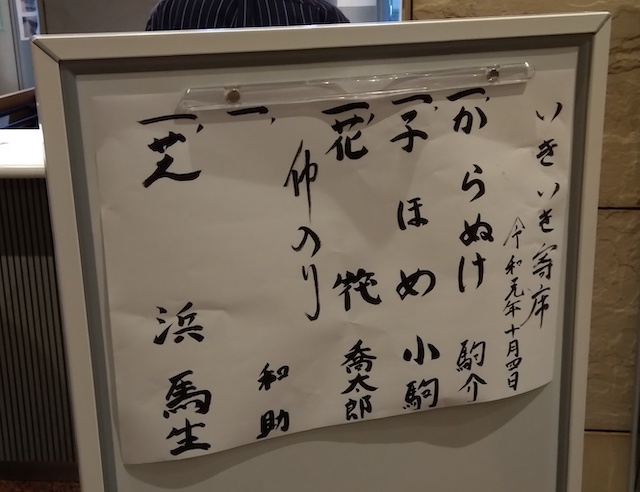 いきいき寄席
令和元年十月四日
一、からぬけ 駒介
一、子ほめ 小駒
一、花筏 喬太郎
仲入り
一、 和助
一、芝浜 馬生